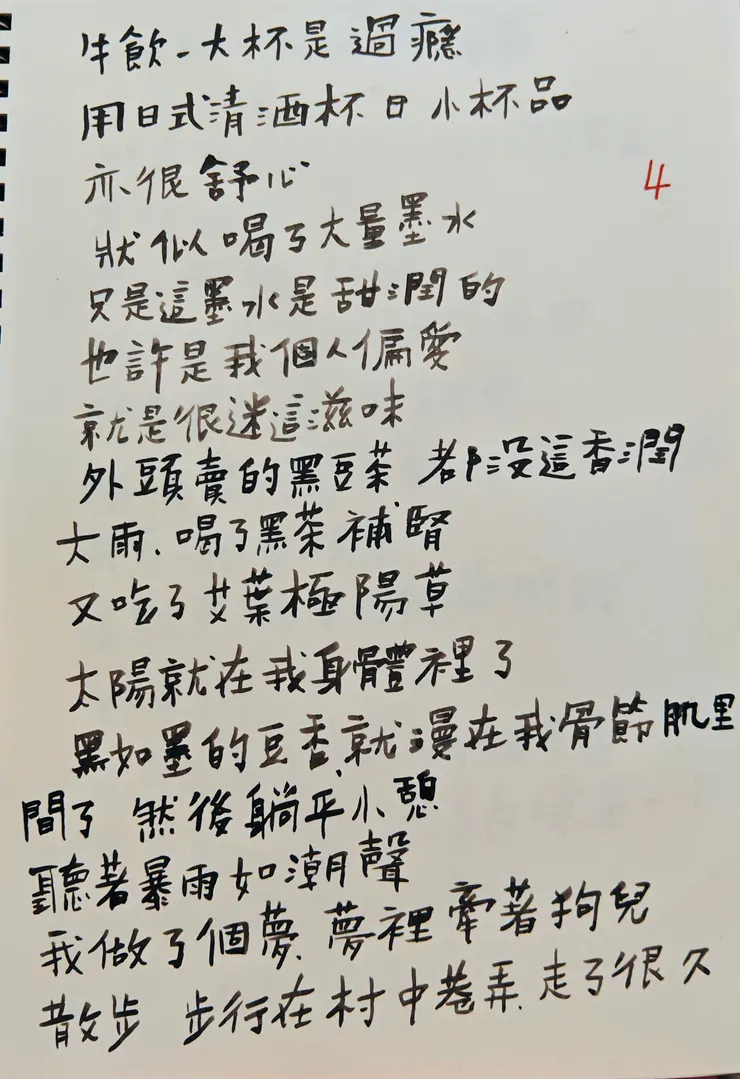 牛飲一大杯是過癮
用日式清酒杯日小杯品
亦很舒心
4
狀似喝了大量墨水
只是這墨水是甜潤的
也許是我個人偏愛
就是很迷這滋味
外頭賣的黑豆茶 都沒這香潤
大雨、喝了黑茶補腎
又吃了艾葉極陽草
太陽就在我身體裡了
黑如墨的豆香、就漫在我骨節肌里
間了 然後躺平小憩
聽著暴雨如潮聲
我做了個夢、夢裡牽著狗兒
散步 步行在村中巷弄、走了很久